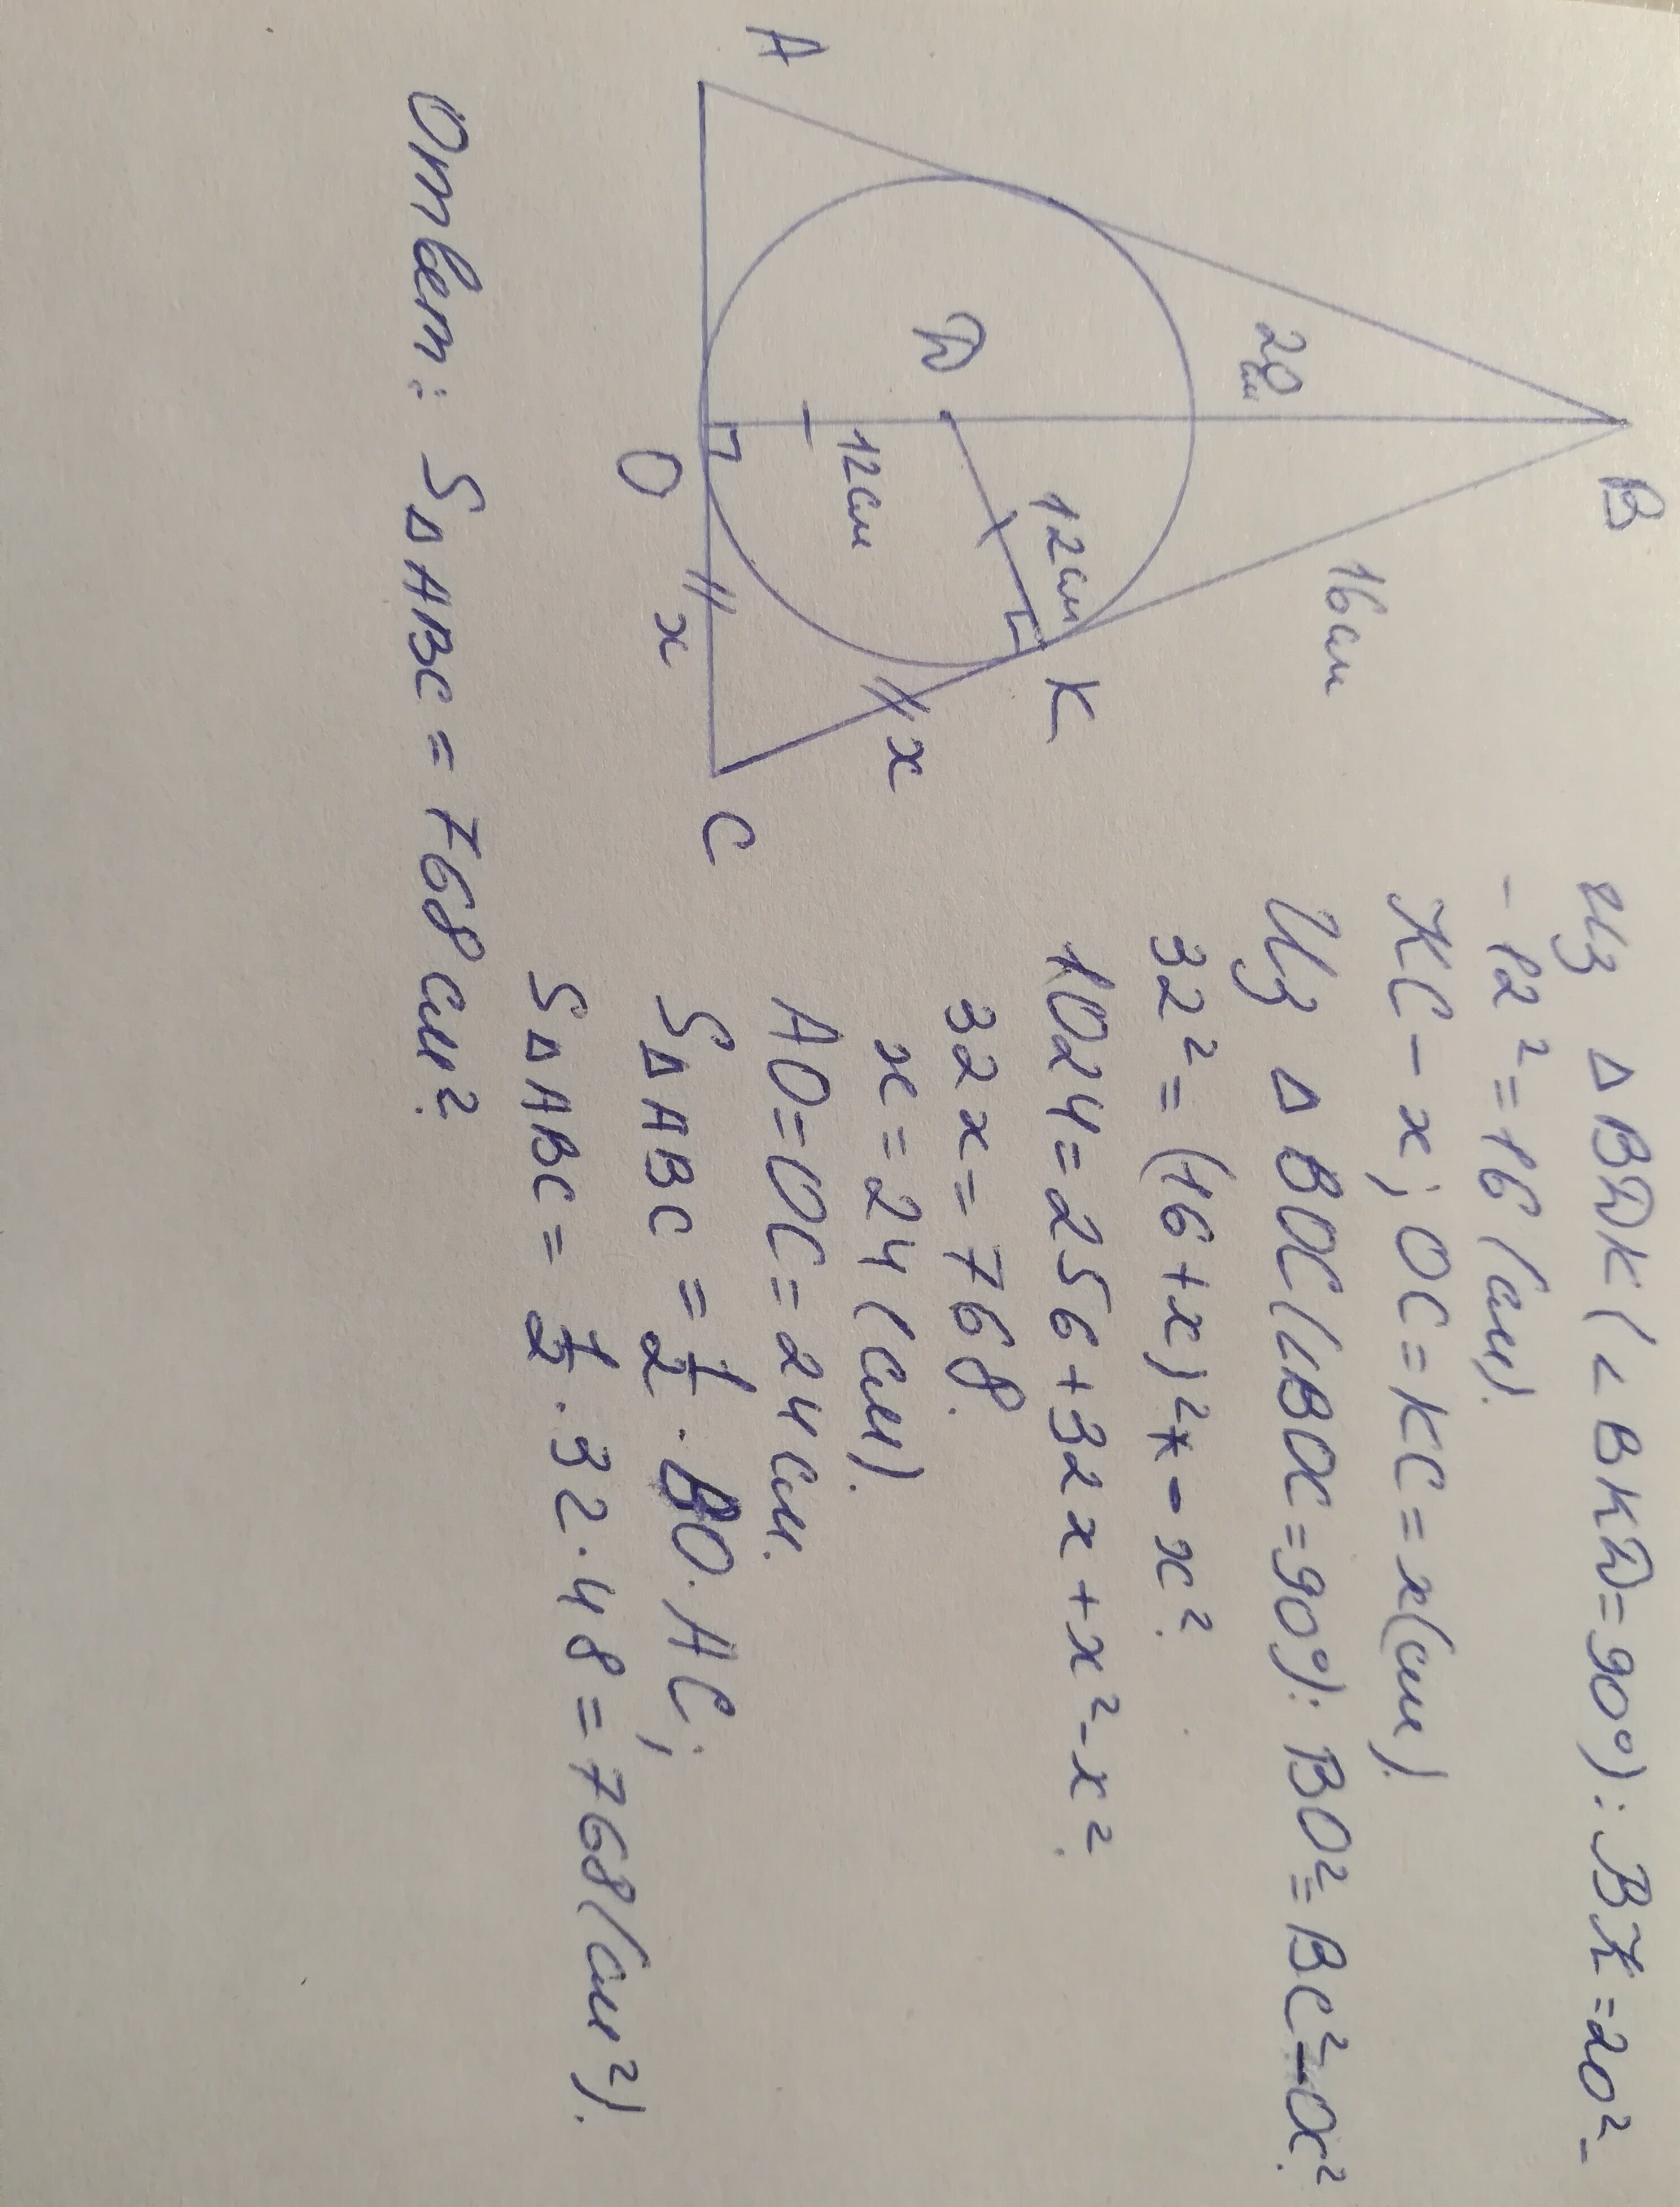 B
20
см
16см
A
D
12см
12см
K
x
O
x
C
Из ΔBDK (∠BKD=90°): BK=20²-
-12²=16 (см).
KC-x; OC=KC=x(см).
Из ΔBOC (∠BOC=90°): BO²=BC²-OC².
32²=(16+x)²-x².
1024=256+32x+x²-x².
32x=768.
x=24 (см).
AO=OC=24см.
SΔABC=1/2·BO·AC;
SΔABC=1/2·32·48=768(см²).
Ответ: SΔABC=768см².